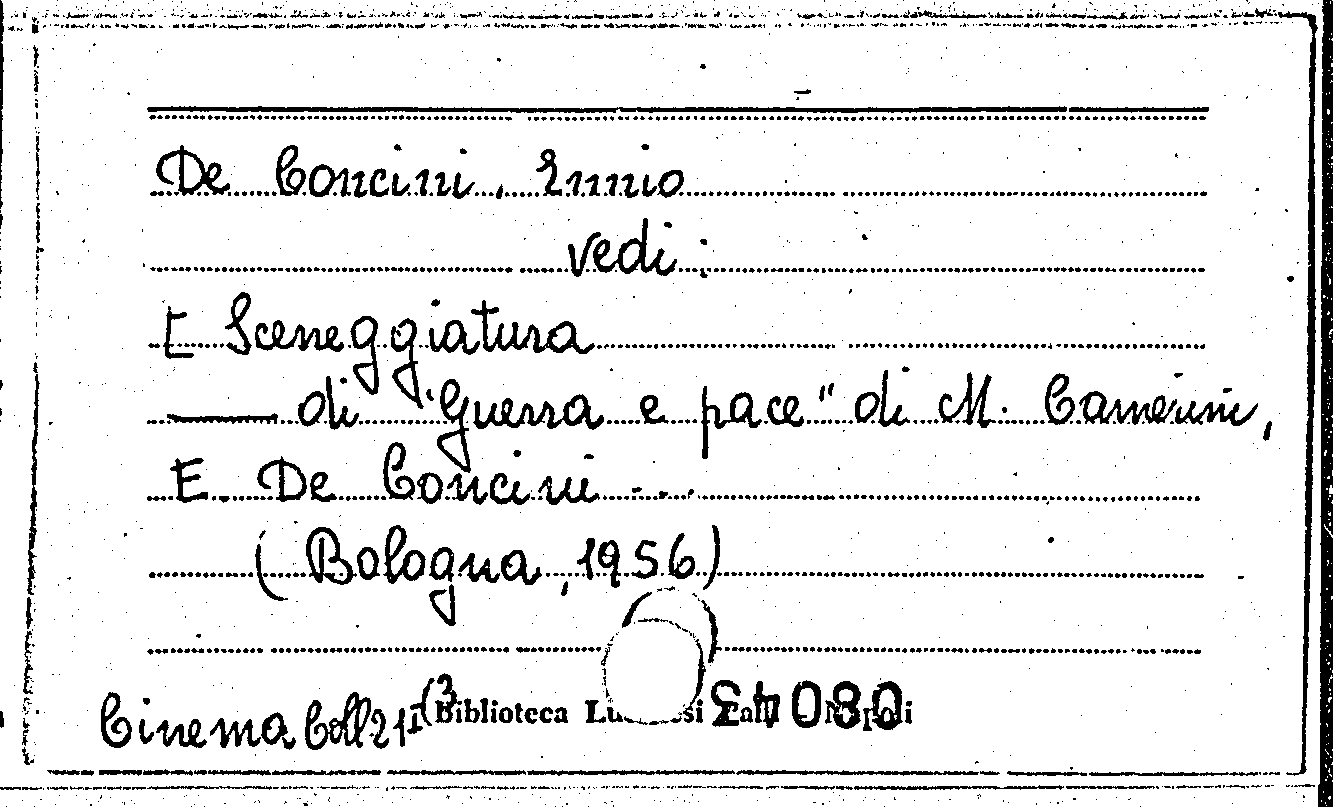 De Concini, Ennio
vedi:
[ Sceneggiatura
— di "Guerra e pace" di M. Camerini,
E. De Concini ...
(Bologna, 1956)
Cinema Coll 21 I (3 Biblioteca